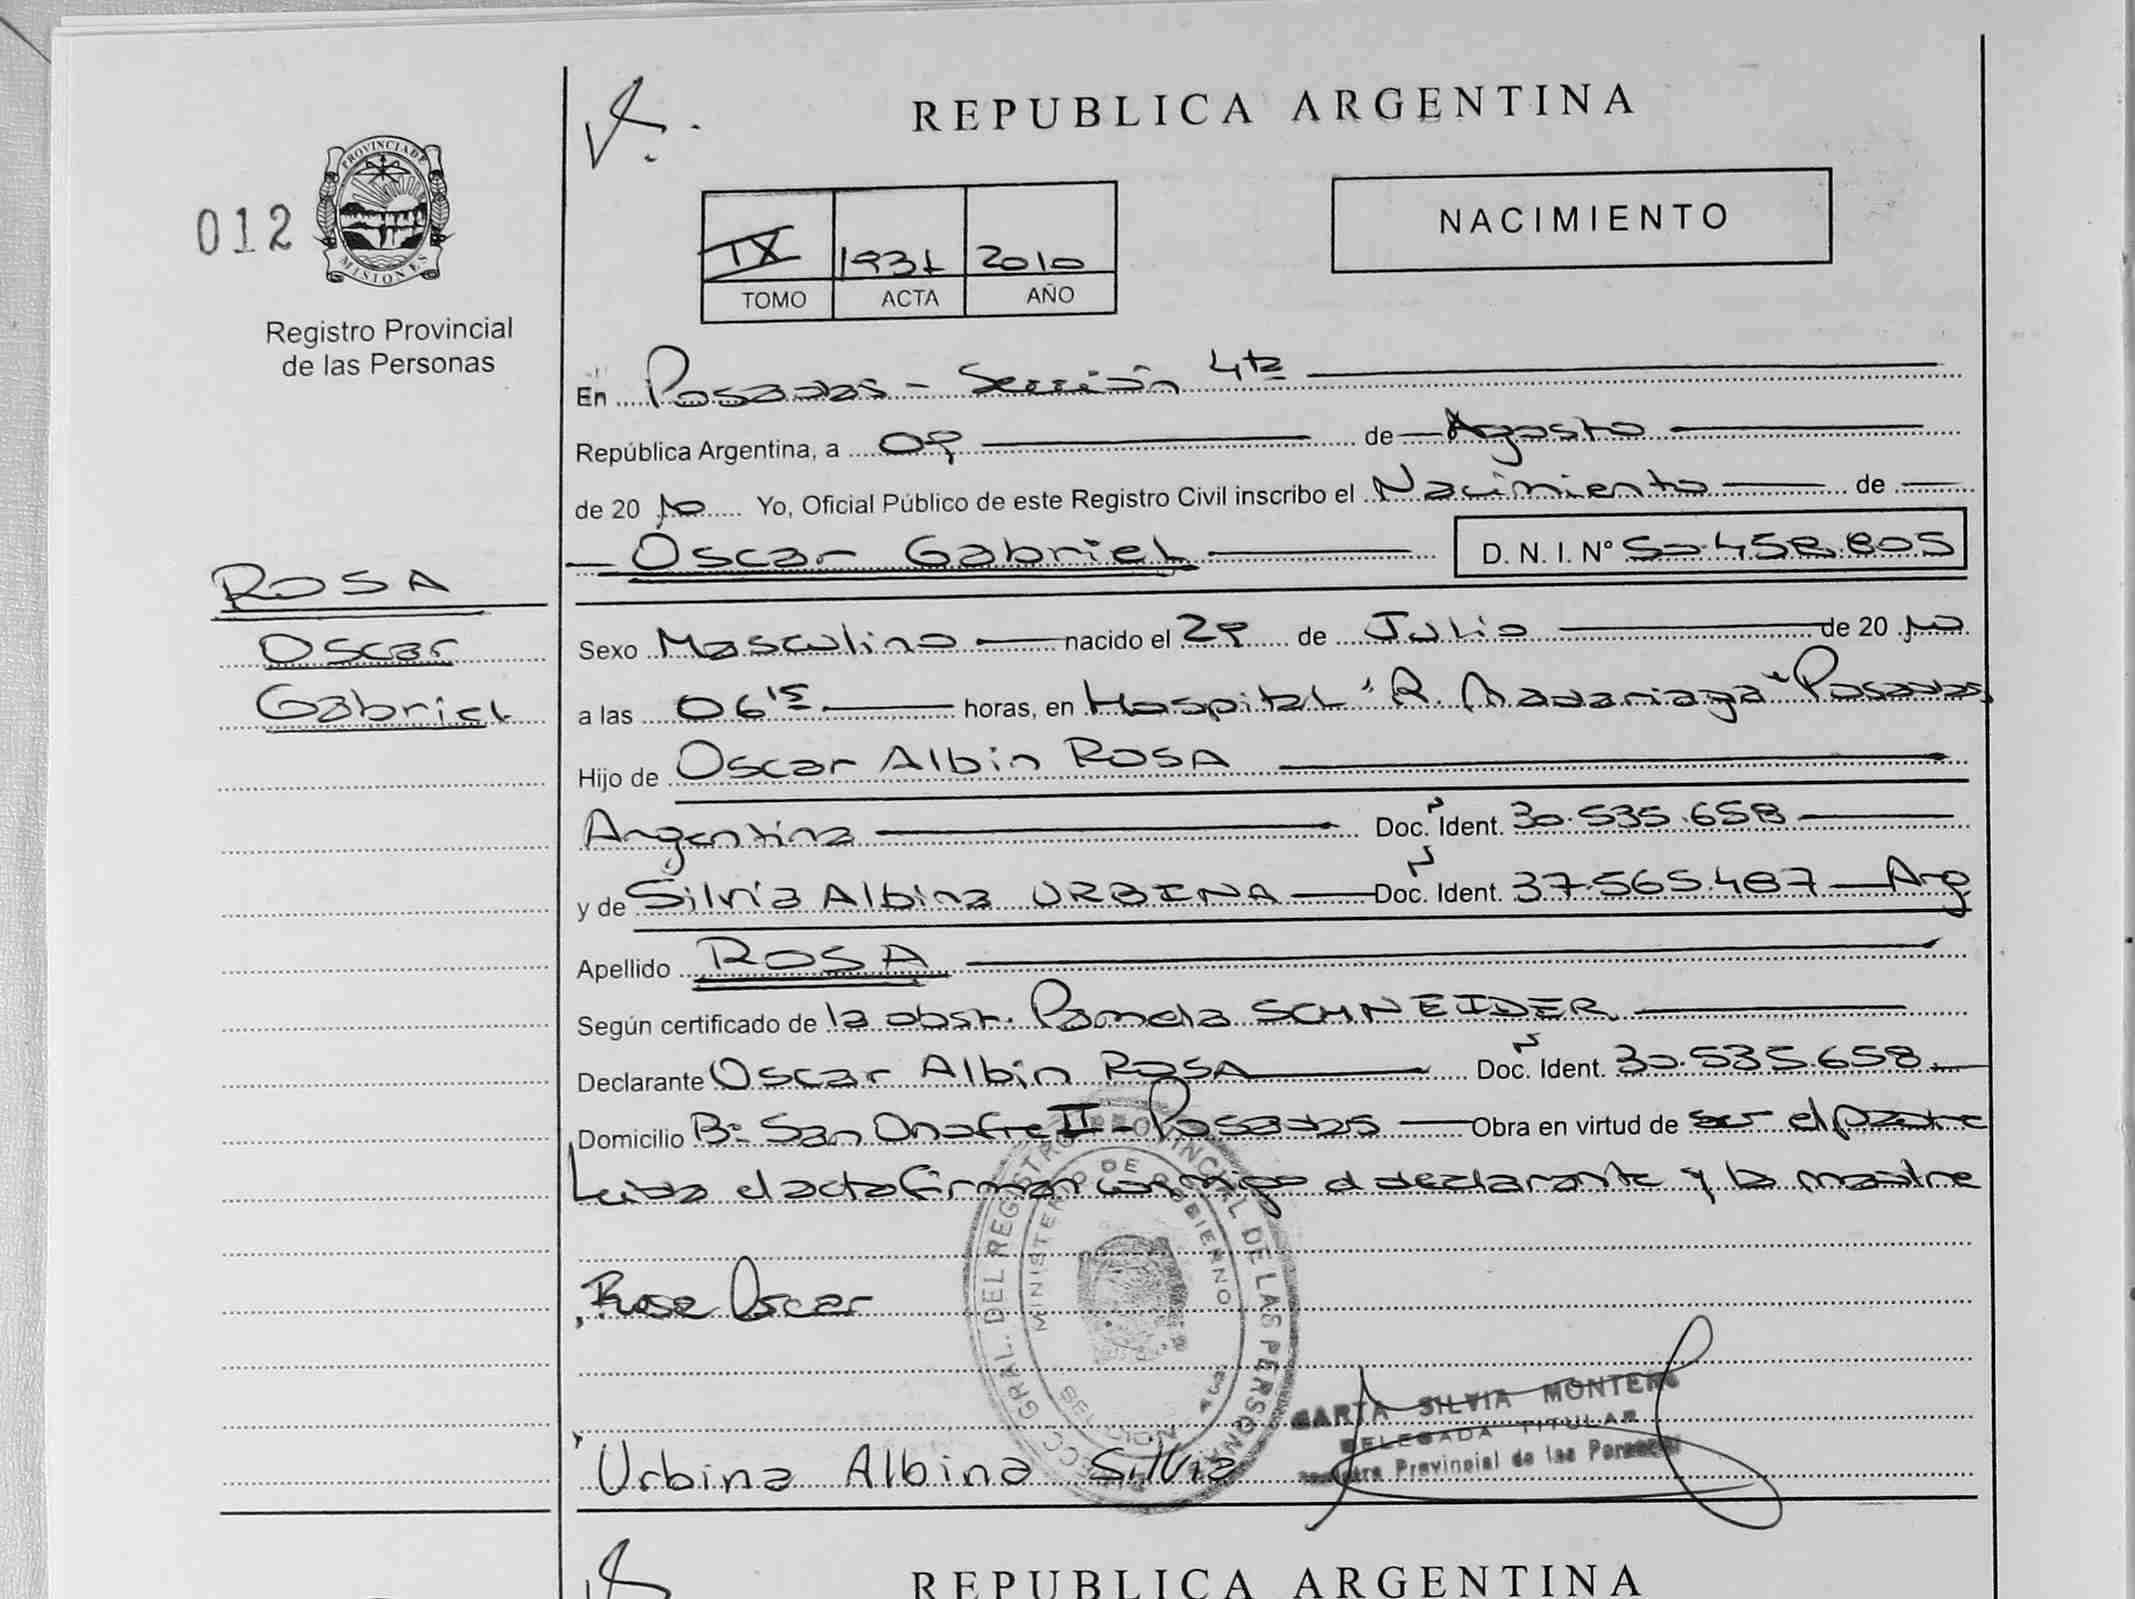 REPUBLICA ARGENTINA
012
PROVINCIA DE MISIONES
Registro Provincial
de las Personas
NACIMIENTO
IX 1931 2010
TOMO ACTA AÑO
En Posadas - Sección 4ta
República Argentina, a 09 de Agosto
de 2010 Yo, Oficial Público de este Registro Civil inscribo el Nacimiento de
Oscar Gabriel D. N. I. N° 50.458.805
ROSA
Oscar
Gabriel
Sexo Masculino nacido el 29 de Julio de 2010
a las 06 15 horas, en Hospital "R. Madariaga" Posadas
Hijo de Oscar Albin ROSA
Argentina Doc. Ident. 30.535.658
y de Silvia Albina URBINA Doc. Ident. 37.565.487 Arg
Apellido ROSA
Según certificado de la obst. Pamela SCHNEIDER
Declarante Oscar Albin ROSA Doc. Ident. 30.535.658
Domicilio B° San Onofre II - Posadas Obra en virtud de ser el padre
Leida el acta firman conmigo el declarante y la madre
Rosa Oscar
GRAL. DEL REGISTRO PROVINCIAL DE LAS PERSONAS
MINISTERIO DE GOBIERNO
SILVIA MONTERO
DELEGADA TITULAR
Provincial de las Personas
Urbina Albina Silvia
REPUBLICA ARGENTINA